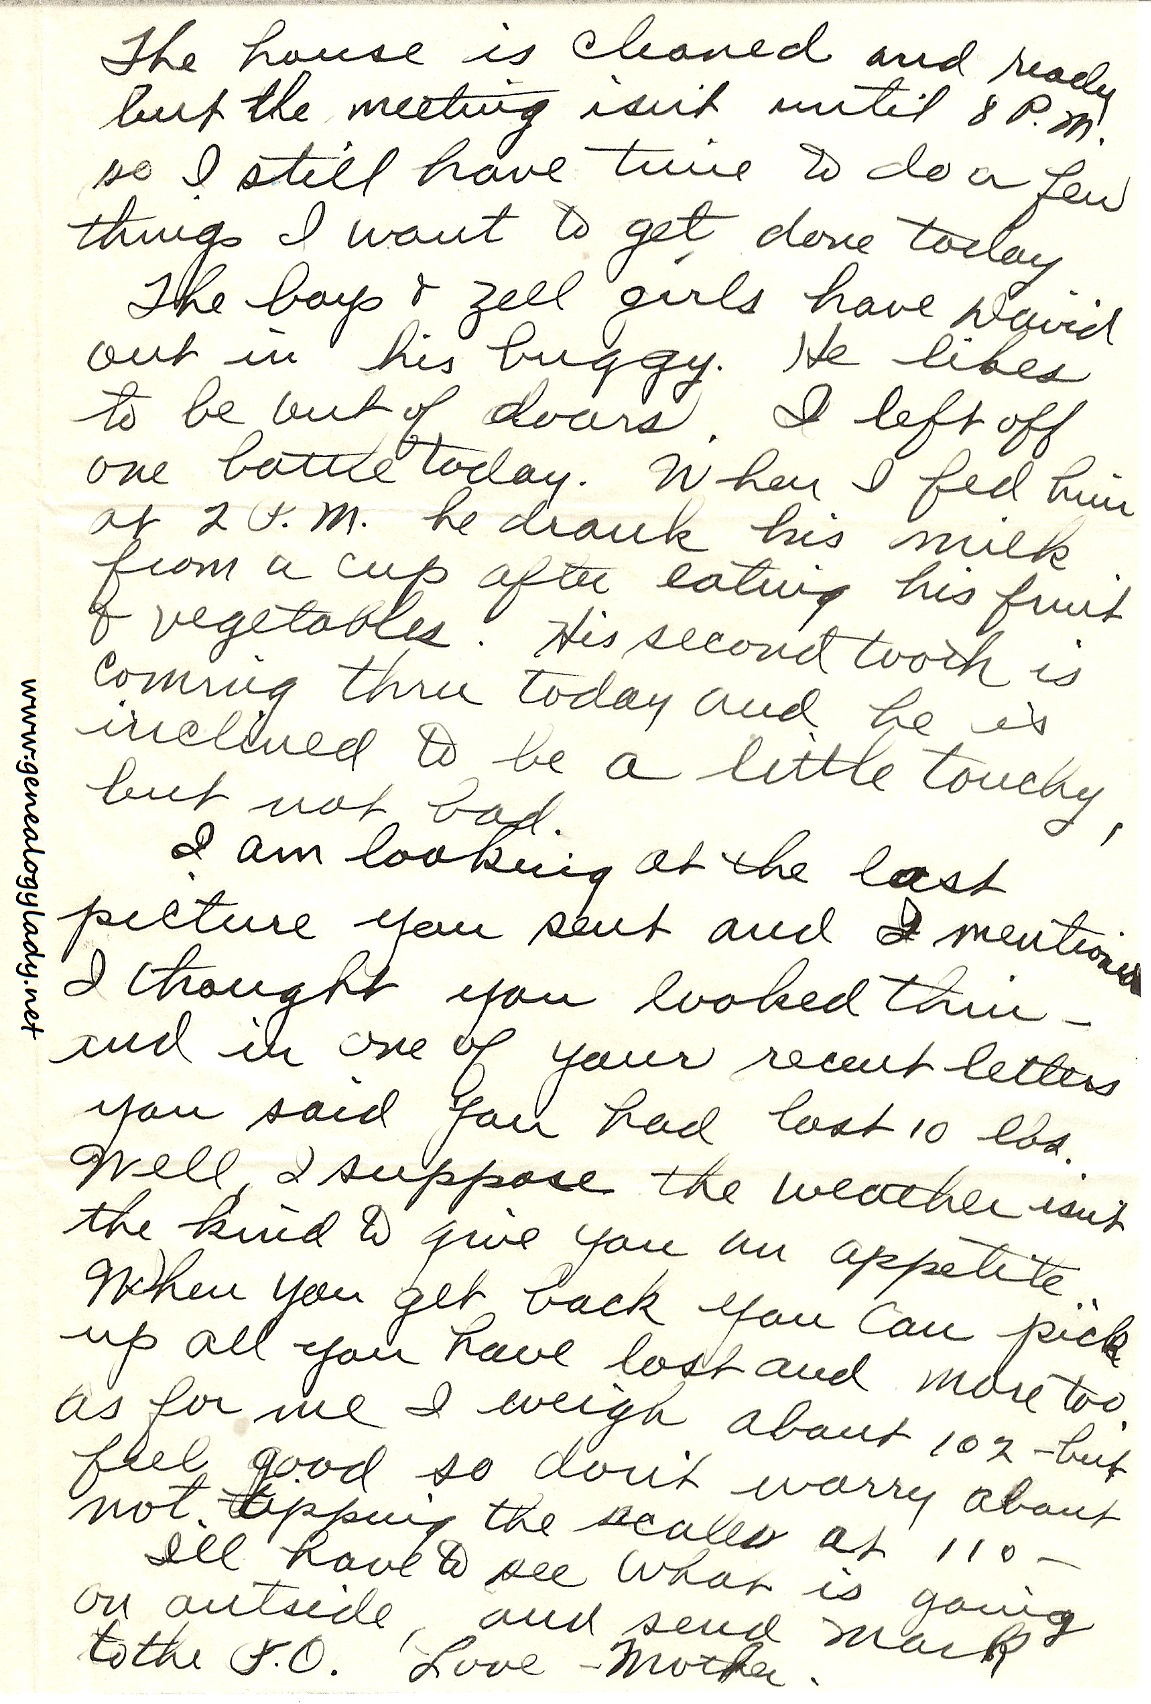 The house is cleaned and ready
but the meeting isn't until 8 P.M.
so I still have time to do a few
things I want to get done today
The boys & Zell girls have David
out in his buggy. He likes
to be out of doors. I left off
one bottle today. When I fed him
at 2 P.M. he drank his milk
from a cup after eating his fruit
& vegetables. His second tooth is
coming thru today and he is
inclined to be a little touchy,
but not bad.
I am looking at the last
picture you sent and I mentioned
I thought you looked thin –
and in one of your recent letters
you said you had lost 10 lbs.
Well, I suppose the weather isn't
the kind to give you an appetite
When you get back you can pick
up all you have lost and more too.
as for me I weigh about 102 – but
feel good so don't worry about
not tipping the scales at 110 –
I'll have to see what is going
on outside, and send Mark
to the P.O. Love – Mother.
www.genealogylady.net